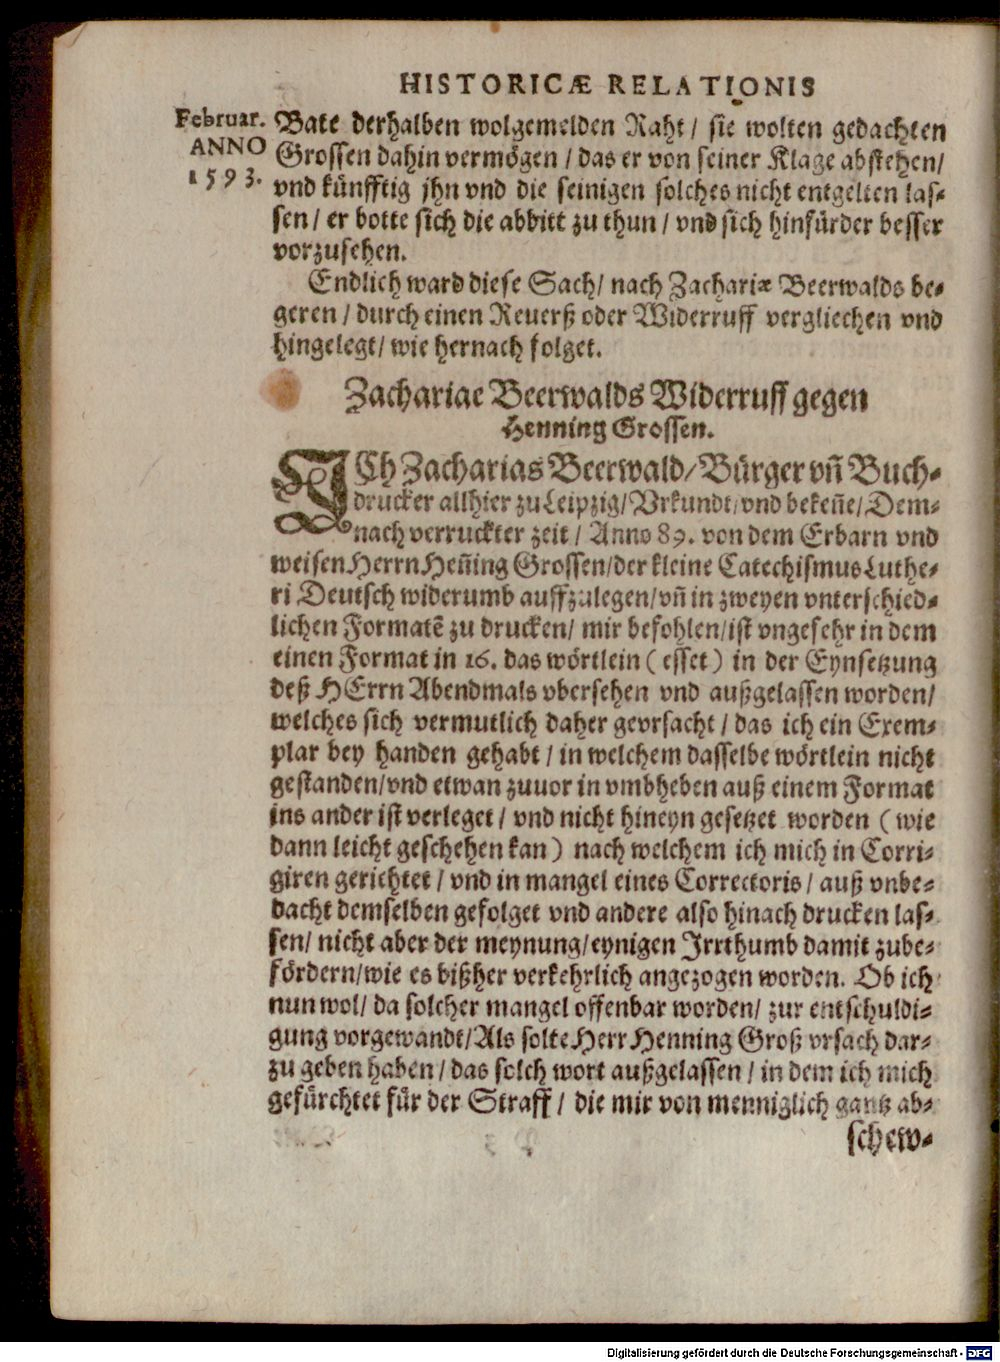 HISTORICÆ RELATIONIS
Februar.
ANNO
1593.
Bate derhalben wolgemelden Raht / sie wolten gedachten
Grossen dahin vermögen / das er von seiner Klage abstehen /
vnd künfftig jhn vnd die seinigen solches nicht entgelten las-
sen / er botte sich die abbitt zu thun / vnd sich hinfürder besser
vorzusehen.
Endlich ward diese Sach / nach Zachariæ Beerwalds be-
geren / durch einen Reuerß oder Widerruff vergliechen vnd
hingelegt / wie hernach folget.
Zachariae Beerwalds Widerruff gegen
Henning Grossen.
ICh Zacharias Beerwald / Bürger vn̄ Buch-
drucker allhier zu Leipzig / Vrkundt / vnd beken̄e / Dem-
nach verruckter zeit / Anno 89. von dem Erbarn vnd
weisen Herrn Hen̄ing Grossen / der kleine Catechismus Luthe-
ri Deutsch widerumb auffzulegen / vn̄ in zweyen vnterschied-
lichen Formatē zu drucken / mir befohlen / ist vngefehr in dem
einen Format in 16. das wörtlein ( esset ) in der Eynsetzung
deß HErrn Abendmals vbersehen vnd außgelassen worden /
welches sich vermutlich daher gevrsacht / das ich ein Exem-
plar bey handen gehabt / in welchem dasselbe wörtlein nicht
gestanden / vnd etwan zuuor in vmbheben auß einem Format
ins ander ist verleget / vnd nicht hineyn gesetzet worden ( wie
dann leicht geschehen kan ) nach welchem ich mich in Corri-
giren gerichtet / vnd in mangel eines Correctoris / auß vnbe-
dacht demselben gefolget vnd andere also hinach drucken las-
sen / nicht aber der meynung / eynigen Irrthumb damit zube-
fördern / wie es bißher verkehrlich angezogen worden. Ob ich
nun wol / da solcher mangel offenbar worden / zur entschuldi-
gung vorgewandt / Als solte Herr Henning Groß vrsach dar-
zu geben haben / das solch wort außgelassen / in dem ich mich
gefürchtet für der Straff / die mir von menniglich gantz ab-
schew-
Digitalisierung gefördert durch die Deutsche Forschungsgemeinschaft - DFG